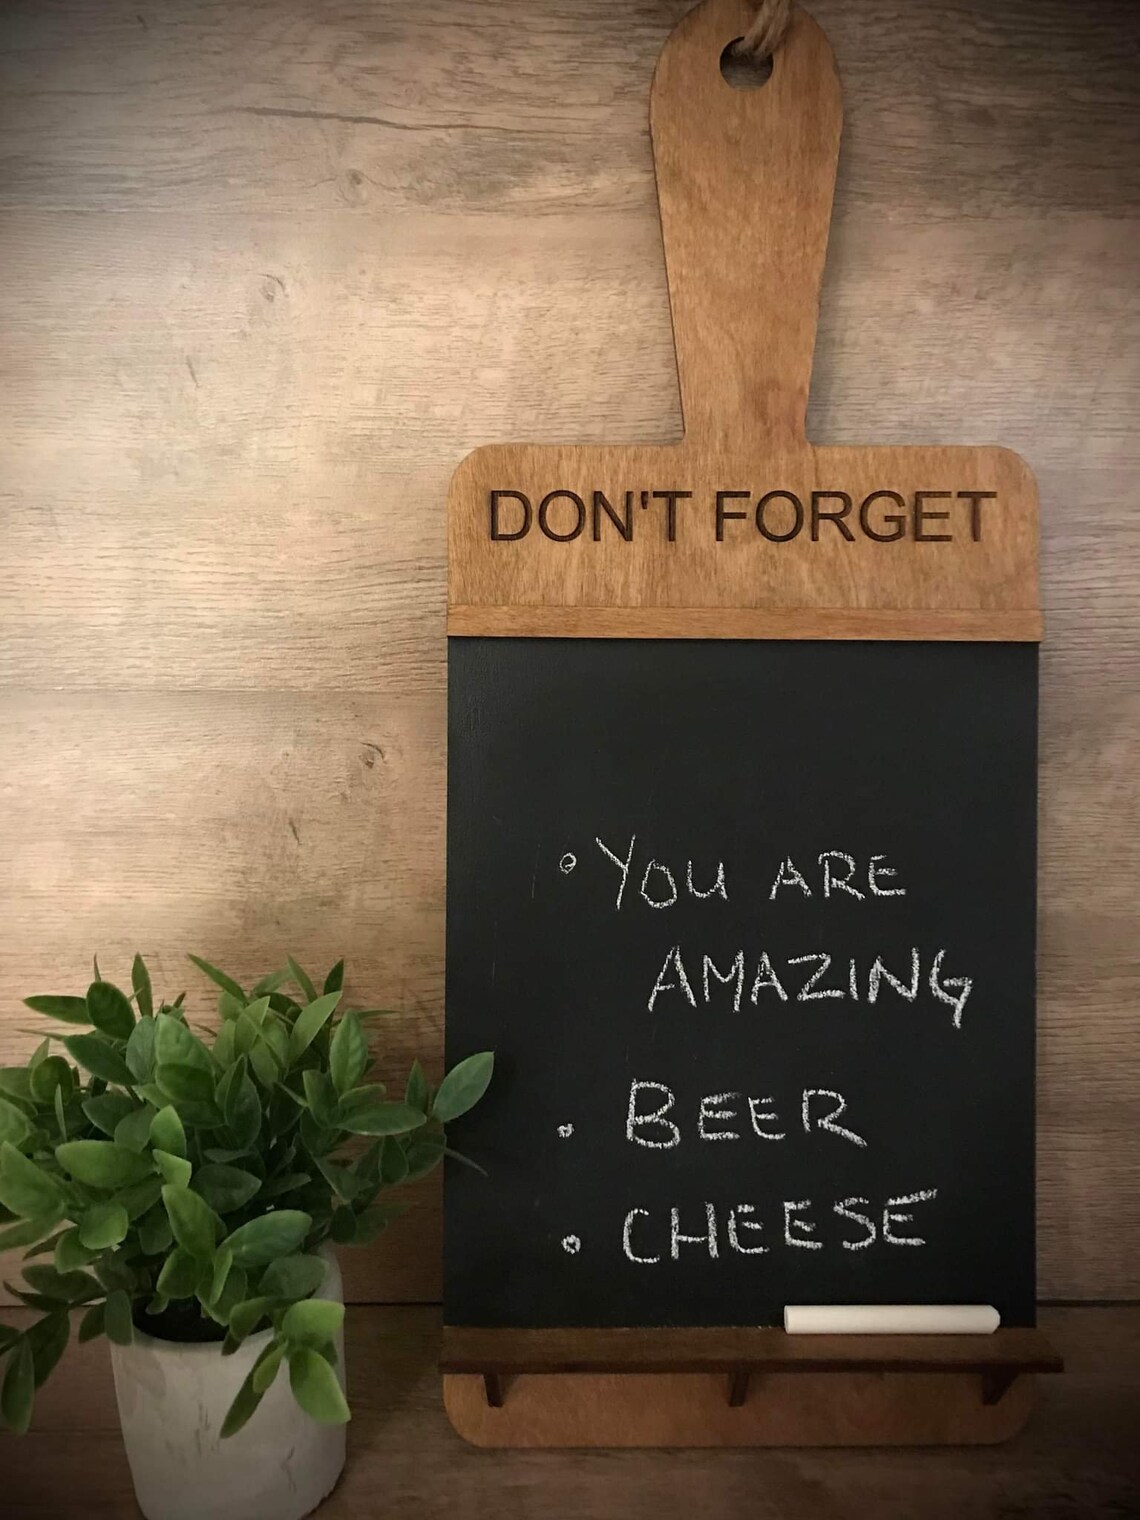 DON'T FORGET
• YOU ARE
AMAZING
• BEER
• CHEESE